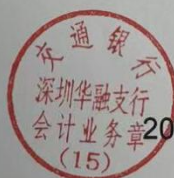 交通银行
深圳华融支行
会计业务章
(15)
20